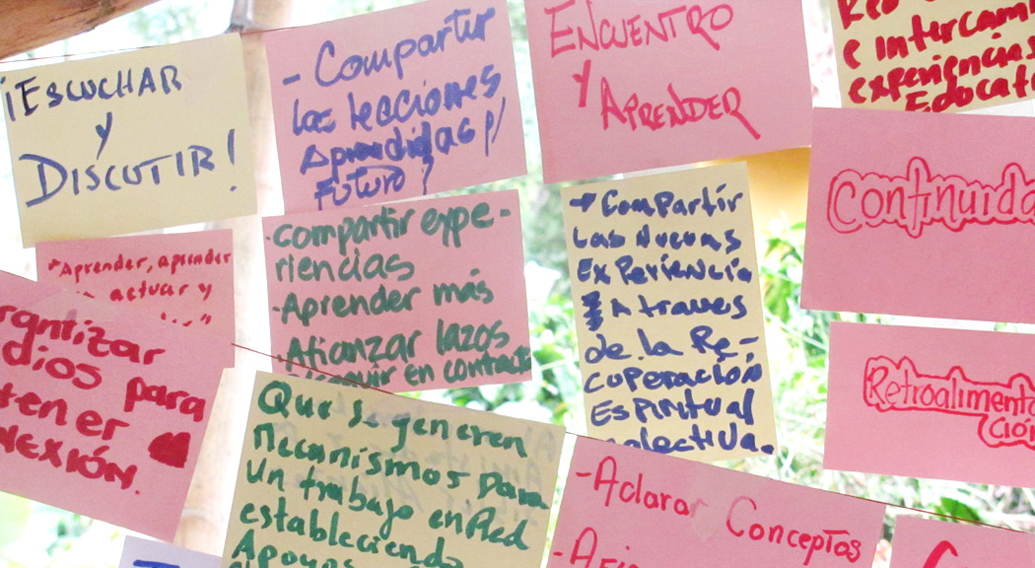 ¡ESCUCHAR
Y
DISCUTIR!
- Compartir
las lecciones
Aprendidas y/
Futuro?
ENCUENTRO
Y
APRENDER
e intercam
experiencias
Educati
"Aprender, aprender
actuar y
compartir expe-
riencias
·Aprender más
·Afianzar lazos
seguir en contacto
→ Compartir
Las Nuevas
Experiencia
A traves
de la Re-
cuperación
Espiritual
colectiva.
Continuida
rantizar
dios para
tener
NEXIÓN.
Retroalimenta
ción
Que se generen
Mecanismos para
un trabajo en Red
estableciendo
Apoyos
-Aclarar Conceptos